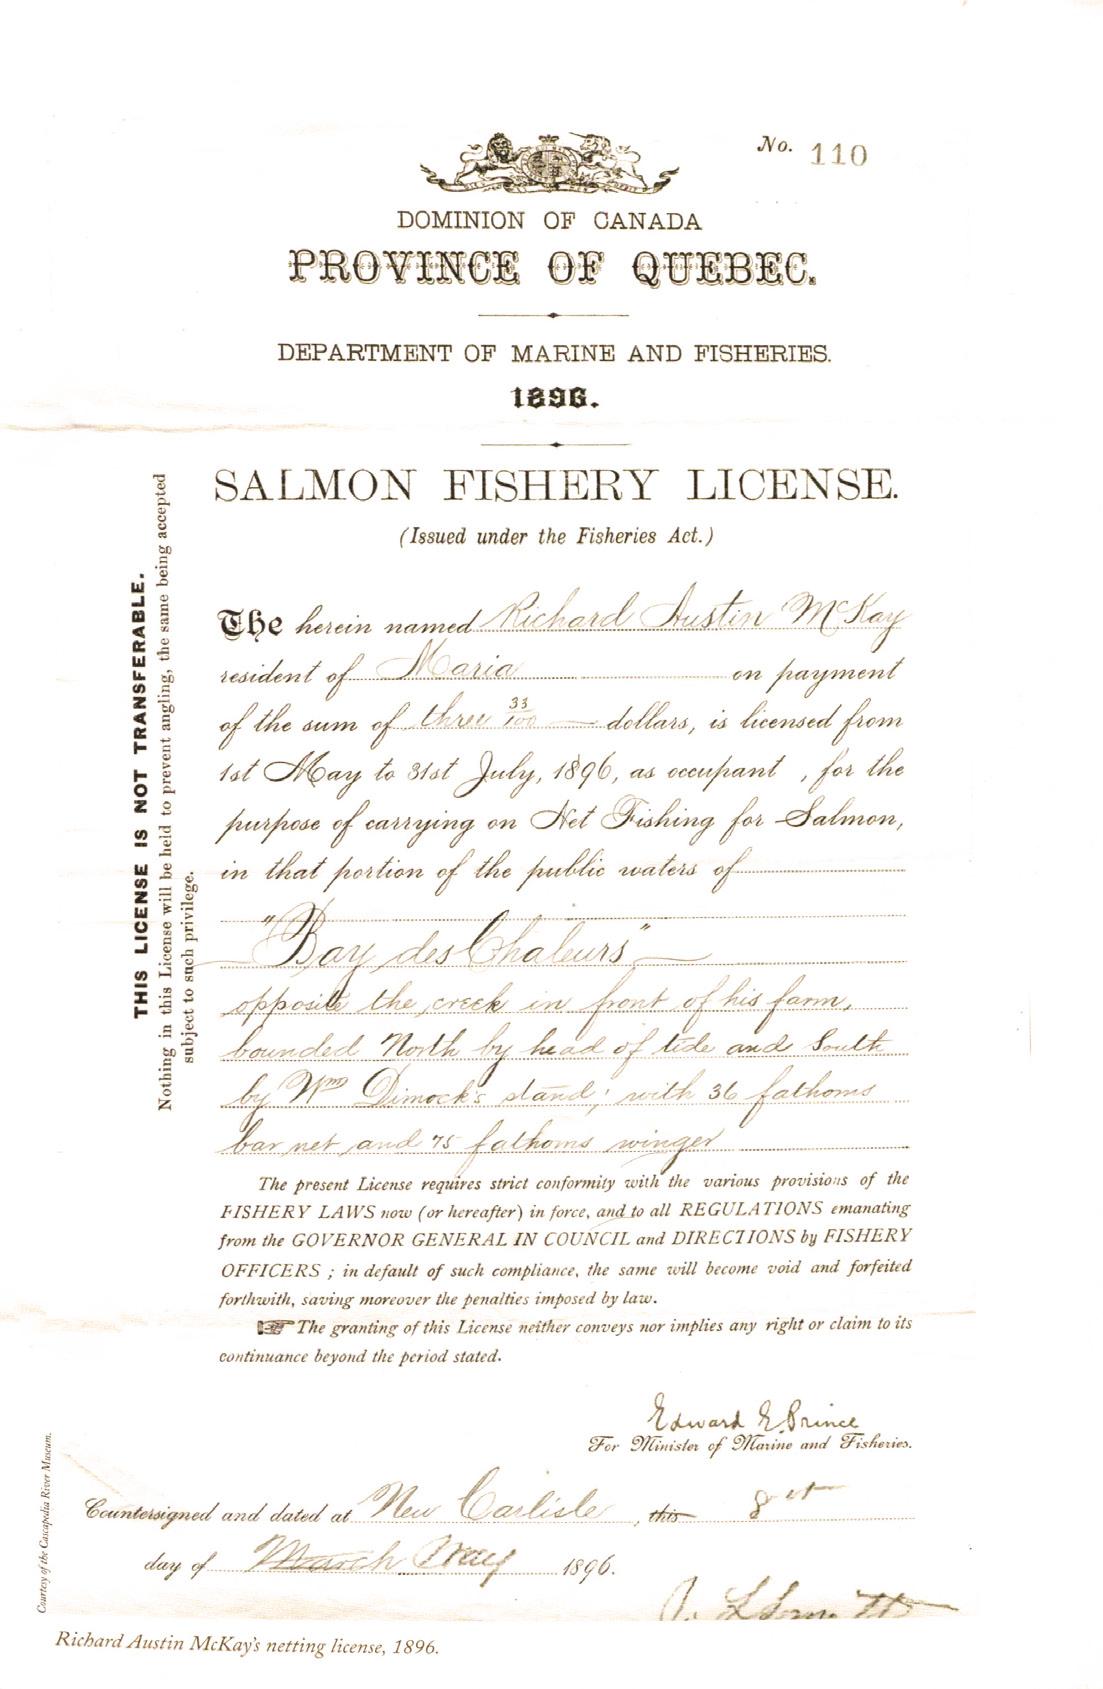 No. 110
DOMINION OF CANADA
PROVINCE OF QUEBEC.
DEPARTMENT OF MARINE AND FISHERIES.
1896.
SALMON FISHERY LICENSE.
(Issued under the Fisheries Act.)
THIS LICENSE IS NOT TRANSFERABLE.
Nothing in this License will be held to prevent angling, the same being accepted
subject to such privilege.
The herein named Richard Austin McKay
resident of Maria on payment
of the sum of three 33/100 — dollars, is licensed from
1st May to 31st July, 1896, as occupant , for the
purpose of carrying on Net Fishing for Salmon,
in that portion of the public waters of
— "Bay des Chaleurs" —
opposite the creek in front of his farm,
bounded North by head of tide and South
by Wm Dimock's stand; with 36 fathoms
bar net and 75 fathoms winger
The present License requires strict conformity with the various provisions of the
FISHERY LAWS now (or hereafter) in force, and to all REGULATIONS emanating
from the GOVERNOR GENERAL IN COUNCIL and DIRECTIONS by FISHERY
OFFICERS ; in default of such compliance, the same will become void and forfeited
forthwith, saving moreover the penalties imposed by law.
The granting of this License neither conveys nor implies any right or claim to its
continuance beyond the period stated.
Edward E. Prince
For Minister of Marine and Fisheries.
Countersigned and dated at New Carlisle, this 8
day of March May 1896.
Courtesy of the Cascapedia River Museum.
Richard Austin McKay's netting license, 1896.